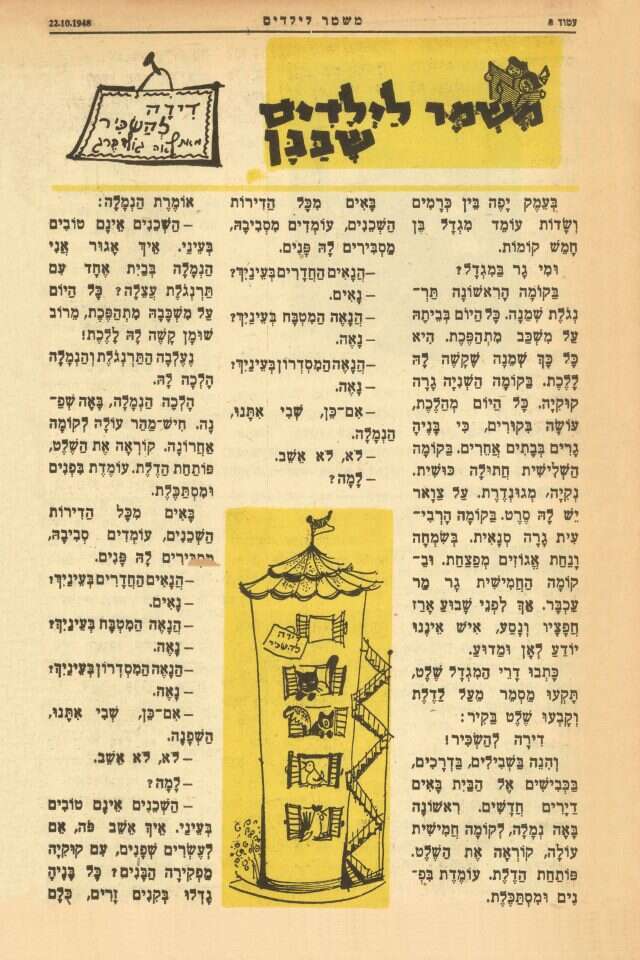 עמוד 8
משמר לילדים
22.10.1948
מִשְׁמָר לִילָדִים
שֶׁבַּגַּן
דִּירָה
לְהַשְׂכִּיר
מאת לאה גולדברג
בְּעֵמֶק יָפֶה בֵּין כְּרָמִים
וְשָׂדוֹת עוֹמֵד מִגְדָּל בֶּן
חָמֵשׁ קוֹמוֹת.
וּמִי גָר בַּמִּגְדָּל?
בַּקּוֹמָה הָרִאשׁוֹנָה תַּרְ־
נְגֹלֶת שְׁמֵנָה. כָּל הַיּוֹם בְּבֵיתָהּ
עַל מִשְׁכָּב מִתְהַפֶּכֶת. הִיא
כָּל כָּךְ שְׁמֵנָה שֶׁקָּשֶׁה לָהּ
לָלֶכֶת. בַּקּוֹמָה הַשְּׁנִיָּה גָרָה
קוּקִיָּה. כָּל הַיּוֹם מְהַלֶּכֶת,
עוֹשָׂה בִּקּוּרִים, כִּי בָּנֶיהָ
גָרִים בְּבָתִּים אֲחֵרִים. בַּקּוֹמָה
הַשְּׁלִישִׁית חֲתוּלָה כּוּשִׁית.
נְקִיָּה, מְגֻנְדֶּרֶת. עַל צַוָּאר
יֵשׁ לָהּ סֶרֶט. בַּקּוֹמָה הָרְבִי־
עִית גָּרָה סְנָאִית. בְּשִׂמְחָה
וָנַחַת אֱגוֹזִים מְפַצַּחַת. וּבַ־
קּוֹמָה הַחֲמִישִׁית גָּר מַר
עַכְבָּר. אַךְ לִפְנֵי שָׁבוּעַ אָרַז
חֲפָצָיו וְנָסַע, אִישׁ אֵינֶנּוּ
יוֹדֵעַ לְאָן וּמַדּוּעַ.
כָּתְבוּ דָרֵי הַמִּגְדָּל שֶׁלֶט,
תָּקְעוּ מַסְמֵר מֵעַל לַדֶּלֶת
וְקָבְעוּ שֶׁלֶט בַּקִּיר:
דִּירָה לְהַשְׂכִּיר!
וְהִנֵּה בַּשְּׁבִילִים, בַּדְּרָכִים,
בַּכְּבִישִׁים אֶל הַבַּיִת בָּאִים
דַּיָּרִים חֲדָשִׁים. רִאשׁוֹנָה
בָּאָה נְמָלָה, לְקוֹמָה חֲמִישִׁית
עוֹלָה, קוֹרְאָה אֶת הַשֶּׁלֶט.
פּוֹתַחַת הַדֶּלֶת. עוֹמֶדֶת בִּפְ־
נִים וּמִסְתַּכֶּלֶת.
בָּאִים מִכָּל הַדִּירוֹת
הַשְּׁכֵנִים, עוֹמְדִים מִסְּבִיבָהּ,
מַסְבִּירִים לָהּ פָּנִים.
– הֲנָאִים הַחֲדָרִים בְּעֵינַיִךְ?
– נָאִים.
– הֲנָאֶה הַמִּטְבָּח בְּעֵינַיִךְ?
– נָאֶה.
– הֲנָאֶה הַמִּסְדְּרוֹן בְּעֵינַיִךְ?
– נָאֶה.
– אִם־כֵּן, שְׁבִי אִתָּנוּ,
הַנְּמָלָה.
– לֹא, לֹא אֵשֵׁב.
– לָמָּה?
דירה
להשכיר
אוֹמֶרֶת הַנְּמָלָה:
– הַשְּׁכֵנִים אֵינָם טוֹבִים
בְּעֵינַי. אֵיךְ אָגוּר אֲנִי
הַנְּמָלָה בְּבַיִת אֶחָד עִם
תַּרְנְגֹלֶת עֲצֵלָה? כָּל הַיּוֹם
עַל מִשְׁכָּבָהּ מִתְהַפֶּכֶת, מֵרוֹב
שׁוּמָן קָשֶׁה לָהּ לָלֶכֶת!
נֶעֶלְבָה הַתַּרְנְגֹלֶת וְהַנְּמָלָה
הָלְכָה לָהּ.
הָלְכָה הַנְּמָלָה, בָּאָה שְׁפַ־
נָּה. חִישׁ־מַהֵר עוֹלָה לְקוֹמָה
אַחֲרוֹנָה. קוֹרְאָה אֶת הַשֶּׁלֶט,
פּוֹתַחַת הַדֶּלֶת. עוֹמֶדֶת בִּפְנִים
וּמִסְתַּכֶּלֶת.
בָּאִים מִכָּל הַדִּירוֹת
הַשְּׁכֵנִים, עוֹמְדִים סְבִיבָהּ,
מַסְבִּירִים לָהּ פָּנִים.
– הֲנָאִים הַחֲדָרִים בְּעֵינַיִךְ?
– נָאִים.
– הֲנָאֶה הַמִּטְבָּח בְּעֵינַיִךְ?
– נָאֶה.
– הֲנָאֶה הַמִּסְדְּרוֹן בְּעֵינַיִךְ?
– נָאֶה.
– אִם־כֵּן, שְׁבִי אִתָּנוּ,
הַשְּׁפַנָּה.
– לֹא, לֹא אֵשֵׁב.
– לָמָּה?
– הַשְּׁכֵנִים אֵינָם טוֹבִים
בְּעֵינַי. אֵיךְ אֵשֵׁב פֹּה, אֵם
לְעֶשְׂרִים שְׁפַנִּים, עִם קוּקִיָּה
מַפְקִירָה הַבָּנִים? כָּל בָּנֶיהָ
גָדְלוּ בְּקִנִּים זָרִים, כֻּלָּם